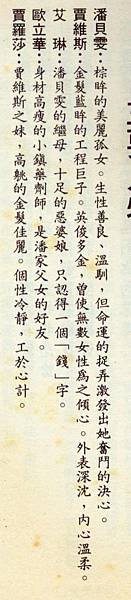 潘貝雯：棕眸的美麗孤女。生性善良、溫馴，但命運的捉弄激發出她奮鬥的決心。
賈維斯：金髮藍眸的工程巨子。英俊多金，曾使無數女性為之傾心。外表深沈，內心溫柔。
艾　琳：潘貝雯的繼母，十足的惡婆娘，只認得一個「錢」字。
歐立華：身材高瘦的小鎮藥劑師，是潘家父女的好友。
賈羅莎：賈維斯之妹，高䠷的金髮佳麗。個性冷靜，工於心計。